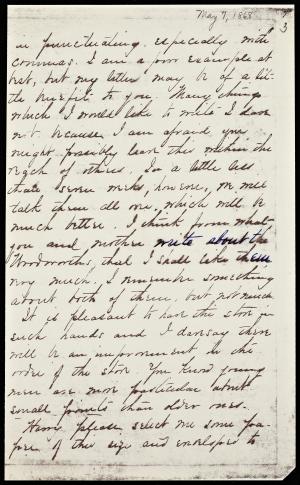 May 7, 1868
3
in punctuating, especially with
commas. I am a poor example at
best, but my letter may be of a lit-
tle benefit to you. Many things
which I would like to write I dare
not because I am afraid you
might possibly leave this within the
reach of others. In a little less
than seven weeks, however, we will
talk them all over, which will be
much better. I think from what
you and mother write about the
Woodworths, that I shall like them
very much. I remember something
about both of them, but not much
It is pleasant to have the store in
such hands and I daresay there
will be an improvement in the
order of the store. You know young
men are more particular about
small points than older ones.
Henry please select me some pa-
per of this size and envelopes to